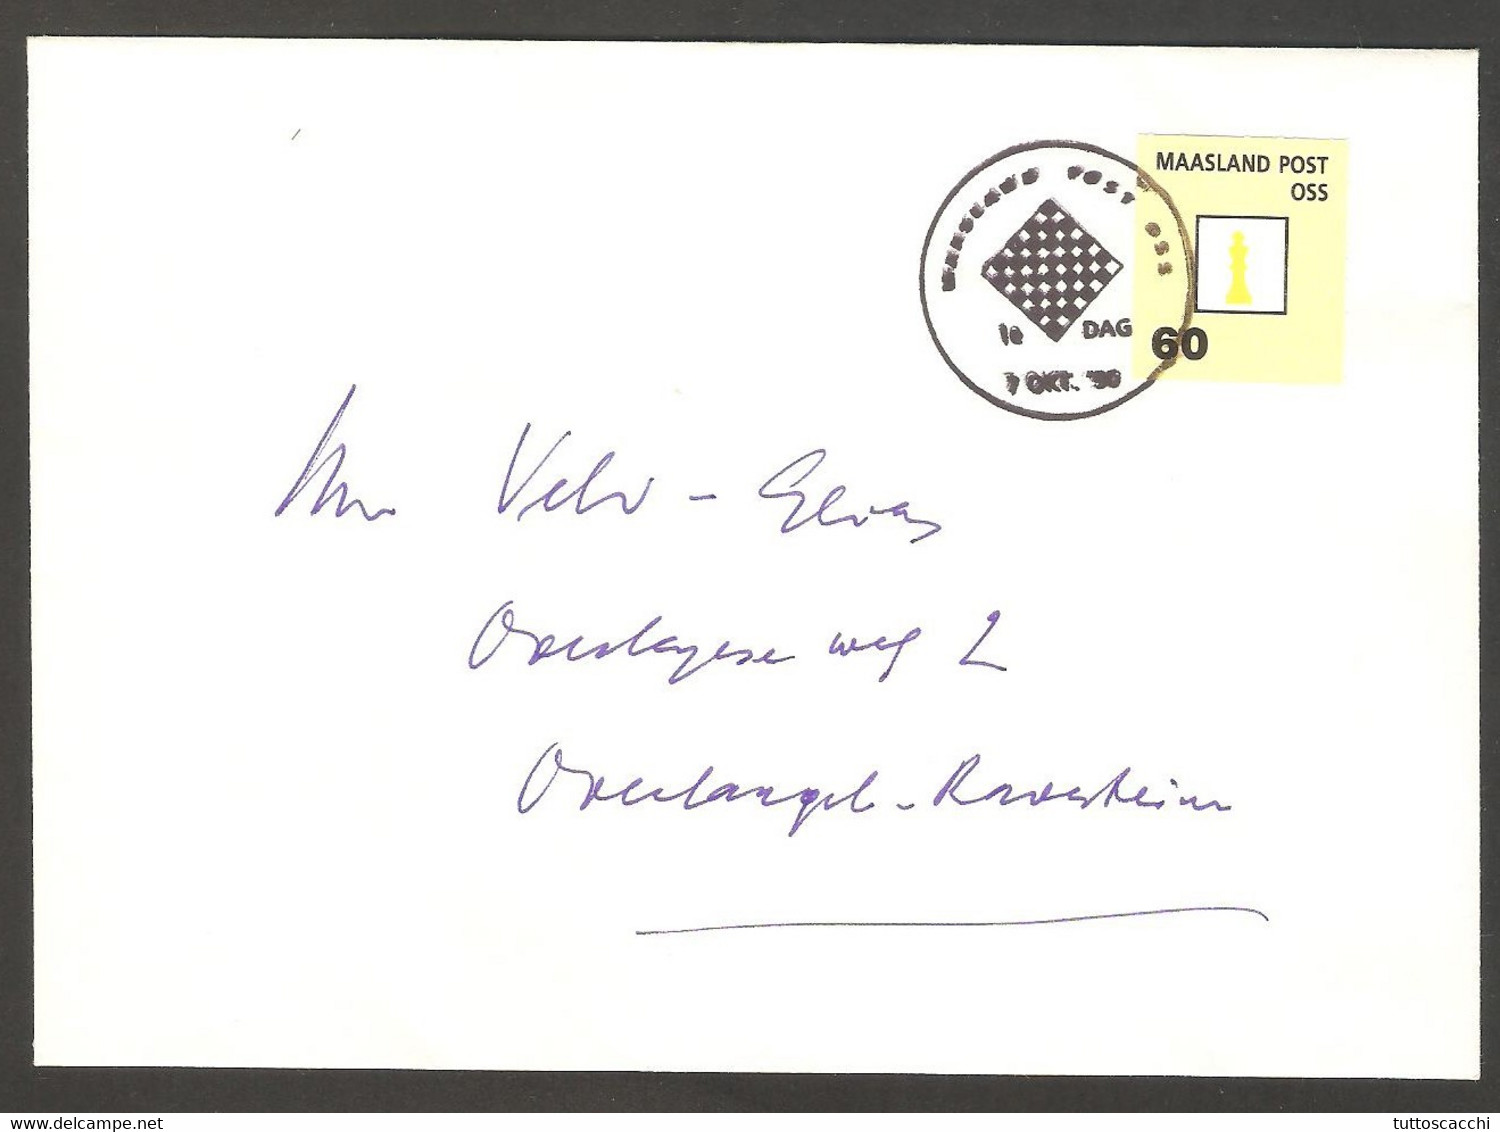 MAASLAND POST
OSS
60
MAASLAND POST OSS
1e DAG
7 OKT. '90
Velr - Elias
Overlangelse weg 2
Overlangel - Ravenstein
delcampe.net
tuttoscacchi